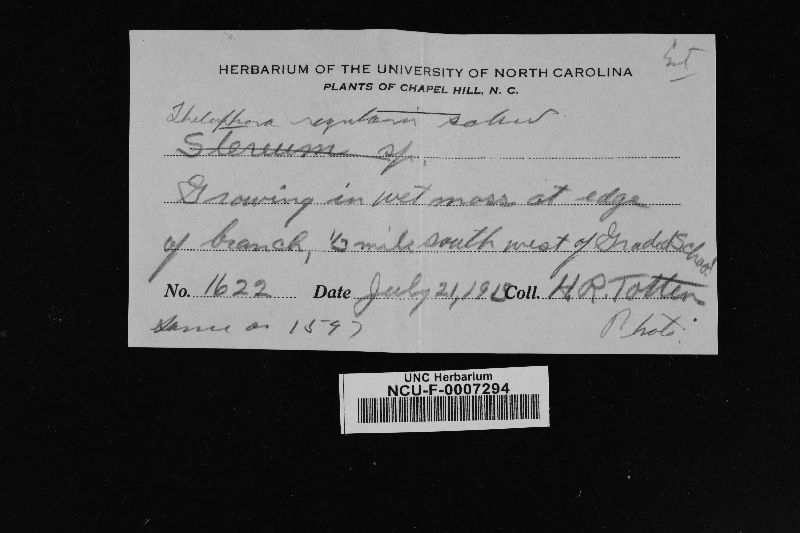 Ent
HERBARIUM OF THE UNIVERSITY OF NORTH CAROLINA
PLANTS OF CHAPEL HILL, N. C.
Thelephora regularis Schw
Stereum sp.
Growing in wet moss at edge
of branch, 1/2 mile south west of Graded School
No. 1622 Date July 21, 1915 Coll. H R Totten
Same as 1597
Photo.
UNC Herbarium
NCU-F-0007294